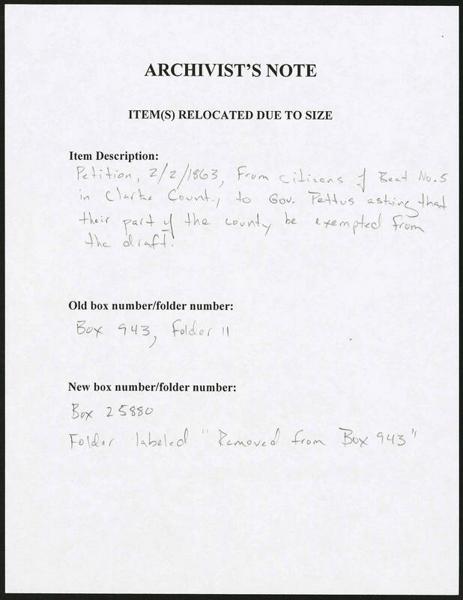 ARCHIVIST'S NOTE
ITEM(S) RELOCATED DUE TO SIZE
Item Description:
Petition, 2/2/1863, From citizens of Beat No. 5
in Clarke County, to Gov. Pettus asking that
their part of the county be exempted from
the draft.
Old box number/folder number:
Box 943, Folder 11
New box number/folder number:
Box 25880
Folder labeled "Removed from Box 943"